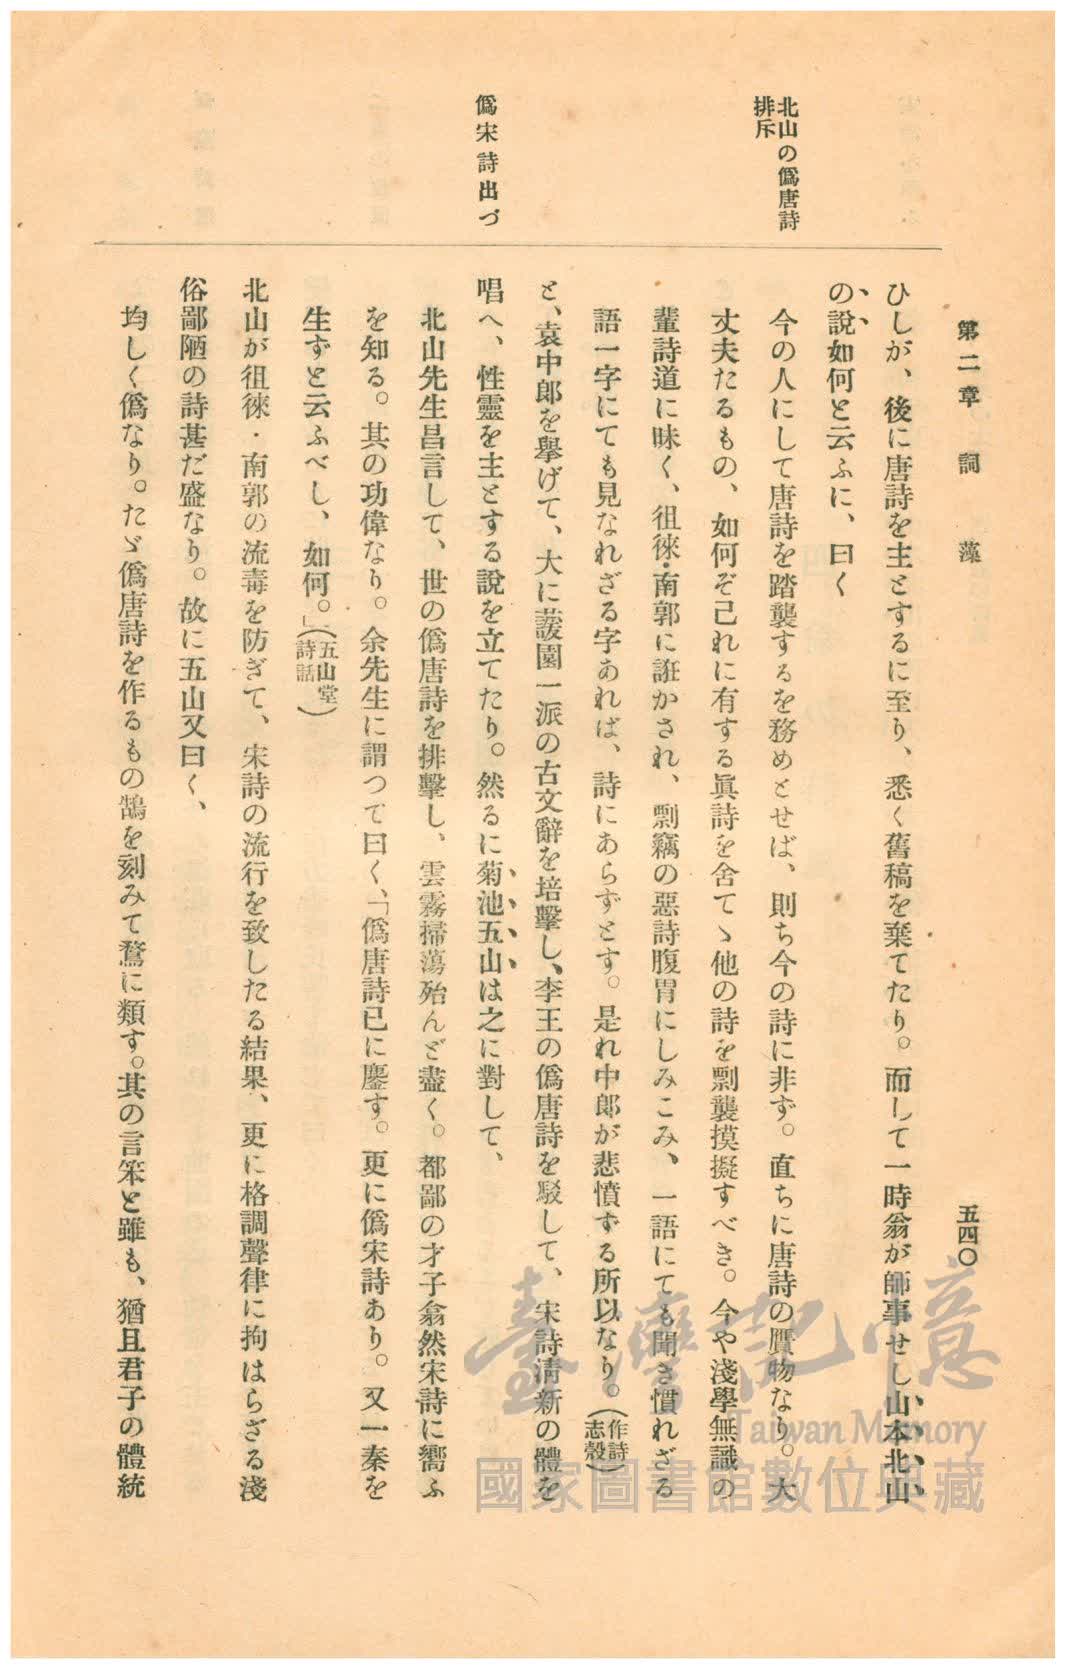 第二章　詞　藻
五四〇
北山の僞唐詩
排斥
僞宋詩出づ
ひしが、後に唐詩を主とするに至り、悉く舊稿を棄てたり。而して一時翁が師事せし山本北山
の說如何と云ふに、曰く
今の人にして唐詩を踏襲するを務めとせば、則ち今の詩に非ず。直ちに唐詩の贋物なり。大
丈夫たるもの、如何ぞ己れに有する眞詩を舍てゝ他の詩を剽襲摸擬すべき。今や淺學無識の
輩詩道に昧く、徂徠・南郭に誑かされ、剽竊の惡詩腹胃にしみこみ、一語にても聞き慣れざる
語一字にても見なれざる字あれば、詩にあらずとす。是れ中郎が悲憤する所以なり。（作詩志彀）
と、袁中郎を擧げて、大に蘐園一派の古文辭を培擊し、李王の僞唐詩を駁して、宋詩淸新の體を
唱へ、性靈を主とする說を立てたり。然るに菊池五山は之に對して、
北山先生昌言して、世の僞唐詩を排擊し、雲霧掃蕩殆んど盡く。都鄙の才子翕然宋詩に嚮ふ
を知る。其の功偉なり。余先生に謂つて曰く、「僞唐詩已に鏖す。更に僞宋詩あり。又一秦を
生ずと云ふべし、如何。」（五山堂詩話）
北山が徂徠・南郭の流毒を防ぎて、宋詩の流行を致したる結果、更に格調聲律に拘はらざる淺
俗鄙陋の詩甚だ盛なり。故に五山又曰く、
均しく僞なり。たゞ僞唐詩を作るもの鵠を刻みて鶩に類す。其の言笨と雖も、猶且君子の體統
臺灣記憶
Taiwan Memory
國家圖書館數位典藏